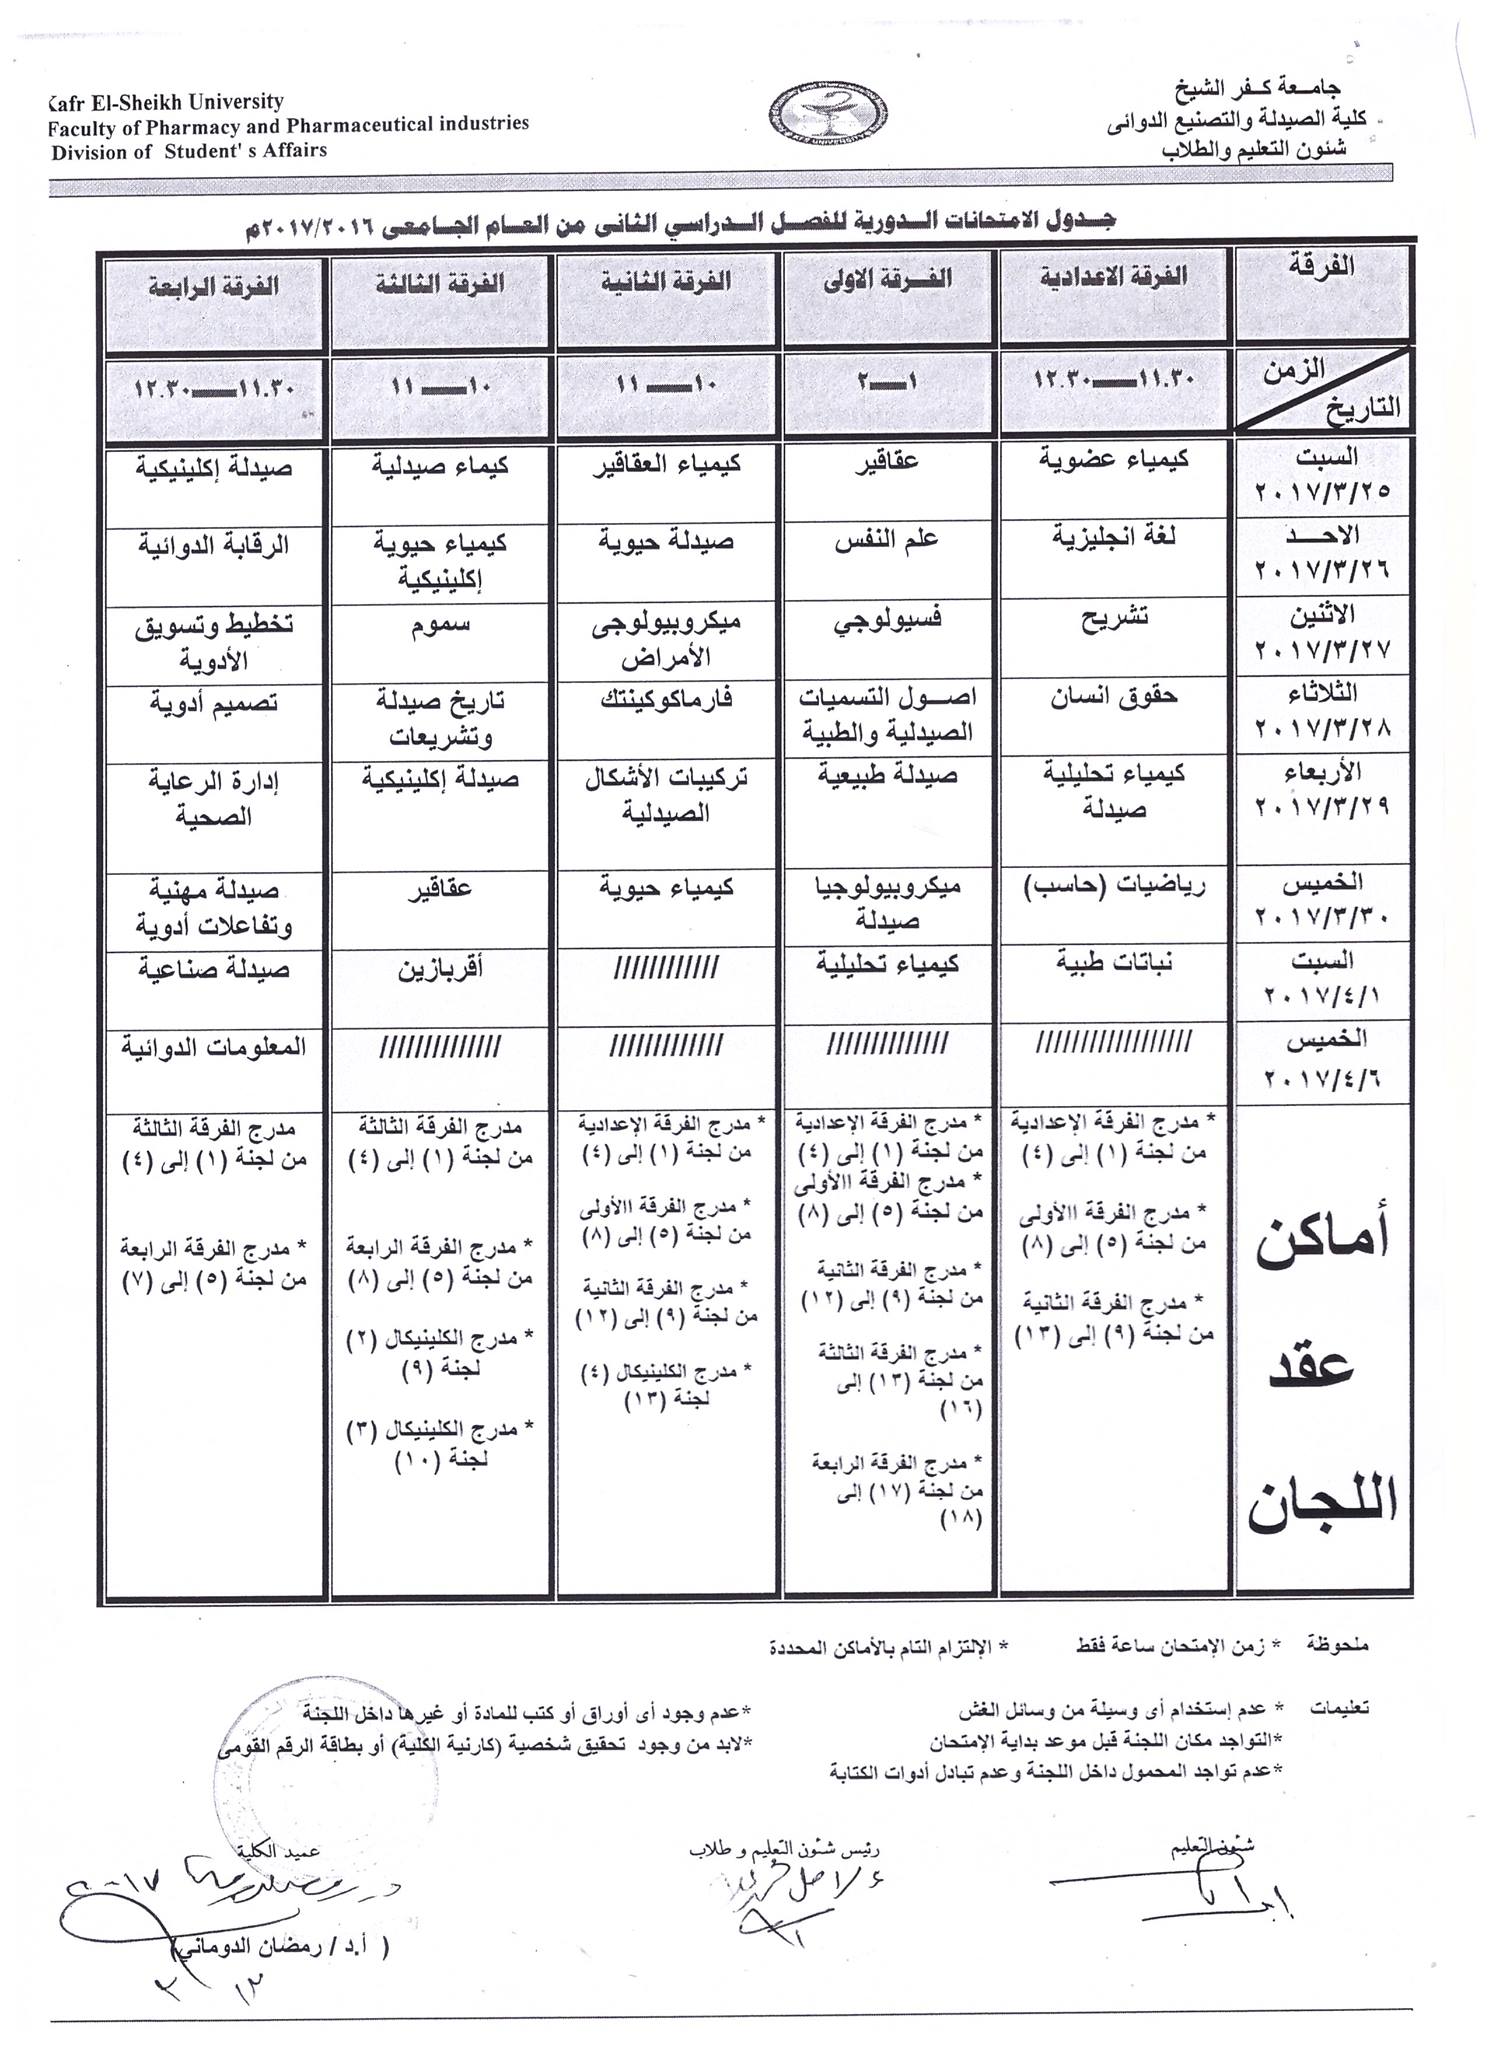 جامعة كفر الشيخ
كلية الصيدلة والتصنيع الدوائى
شئون التعليم والطلاب
Kafr El-Sheikh University
Faculty of Pharmacy and Pharmaceutical industries
Division of Student' s Affairs
جدول الامتحانات الدورية للفصل الدراسي الثانى من العام الجامعى ٢٠١٧/٢٠١٦م
الفرقة الفرقة الاعدادية الفرقة الاولى الفرقة الثانية الفرقة الثالثة الفرقة الرابعة
الزمن ١١.٣٠ــ١٢.٣٠ ١ــ٢ ١٠ــ١١ ١٠ــ١١ ١١.٣٠ــ١٢.٣٠
التاريخ
السبت كيمياء عضوية عقاقير كيمياء العقاقير كيماء صيدلية صيدلة إكلينيكية
٢٠١٧/٣/٢٥
الاحد لغة انجليزية علم النفس صيدلة حيوية كيمياء حيوية الرقابة الدوائية
٢٠١٧/٣/٢٦ إكلينيكية
الاثنين تشريح فسيولوجي ميكروبيولوجى سموم تخطيط وتسويق
٢٠١٧/٣/٢٧ الأمراض الأدوية
الثلاثاء حقوق انسان اصول التسميات فارماكوكينتك تاريخ صيدلة تصميم أدوية
٢٠١٧/٣/٢٨ الصيدلية والطبية وتشريعات
الأربعاء كيمياء تحليلية صيدلة طبيعية تركيبات الأشكال صيدلة إكلينيكية إدارة الرعاية
٢٠١٧/٣/٢٩ صيدلة الصيدلية الصحية
الخميس رياضيات (حاسب) ميكروبيولوجيا كيمياء حيوية عقاقير صيدلة مهنية
٢٠١٧/٣/٣٠ صيدلة وتفاعلات أدوية
السبت نباتات طبية كيمياء تحليلية //////////// أقربازين صيدلة صناعية
٢٠١٧/٤/١
الخميس ////////////////// ////////////// ///////////// ////////////// المعلومات الدوائية
٢٠١٧/٤/٦
أماكن
عقد
اللجان
* مدرج الفرقة الإعدادية
من لجنة (١) إلى (٤)
* مدرج الفرقة االأولى
من لجنة (٥) إلى (٨)
* مدرج الفرقة الثانية
من لجنة (٩) إلى (١٣)
* مدرج الفرقة الإعدادية
من لجنة (١) إلى (٤)
* مدرج الفرقة االأولى
من لجنة (٥) إلى (٨)
* مدرج الفرقة الثانية
من لجنة (٩) إلى (١٢)
* مدرج الفرقة الثالثة
من لجنة (١٣) إلى
(١٦)
* مدرج الفرقة الرابعة
من لجنة (١٧) إلى
(١٨)
* مدرج الفرقة الإعدادية
من لجنة (١) إلى (٤)
* مدرج الفرقة االأولى
من لجنة (٥) إلى (٨)
* مدرج الفرقة الثانية
من لجنة (٩) إلى (١٢)
* مدرج الكلينيكال (٤)
لجنة (١٣)
مدرج الفرقة الثالثة
من لجنة (١) إلى (٤)
* مدرج الفرقة الرابعة
من لجنة (٥) إلى (٨)
* مدرج الكلينيكال (٢)
لجنة (٩)
* مدرج الكلينيكال (٣)
لجنة (١٠)
مدرج الفرقة الثالثة
من لجنة (١) إلى (٤)
* مدرج الفرقة الرابعة
من لجنة (٥) إلى (٧)
ملحوظة * زمن الإمتحان ساعة فقط * الإلتزام التام بالأماكن المحددة
تعليمات * عدم إستخدام أى وسيلة من وسائل الغش *عدم وجود أى أوراق أو كتب للمادة أو غيرها داخل اللجنة
*التواجد مكان اللجنة قبل موعد بداية الإمتحان *لابد من وجود تحقيق شخصية (كارنية الكلية) أو بطاقة الرقم القومى
*عدم تواجد المحمول داخل اللجنة وعدم تبادل أدوات الكتابة
شئون التعليم رئيس شئون التعليم و طلاب عميد الكلية
٢٠١٧
( أ.د / رمضان الدوماني)